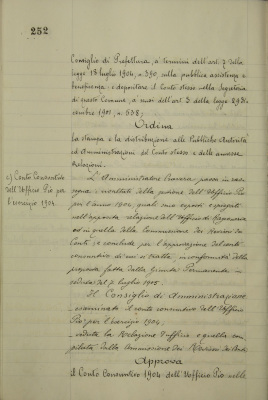 252
Consiglio di Prefettura, a termini dell'art. 7 della
legge 18 luglio 1904, n. 390, sulla pubblica assistenza e
beneficenza e depositare il Conto stesso nella Segreteria
di questo Comune, a sensi dell'art. 3 della legge
1901, n. 538;
Ordina
la stampa e la distribuzione alle Pubbliche Autorità
ed Amministrazioni del Conto stesso e delle annesse
Relazioni.
2) Conto Consuntivo
dell'Ufficio Pio per
l'esercizio 1904.
L'Amministratore passa in
i risultati della gestione dell'Ufficio Pio
per l'anno 1904, quali sono esposti e spiegati
nell'apposita relazione dell'Ufficio di Ragioneria
ed in quella della Commissione dei Revisori dei
Conti, e conclude per l'approvazione del conto
consuntivo di cui si tratta, in conformità della
proposta fatta dalla Giunta Permanente in
seduta del 7 luglio 1905.
Il Consiglio di Amministrazione
esaminato il conto consuntivo dell'Ufficio
Pio per l'esercizio 1904;
vedute la Relazione d'ufficio e quella com-
pilata dalla Commissione dei Revisori dei Conti
Approva
il Conto Consuntivo 1904 dell'Ufficio Pio nelle